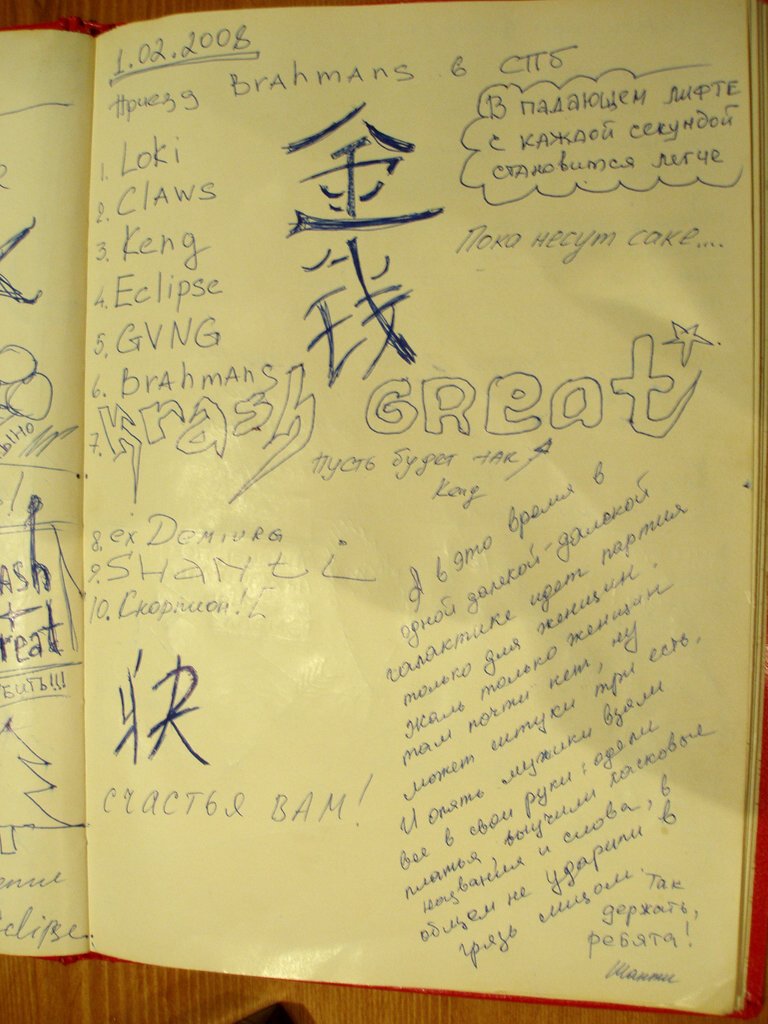 1.02.2008
Приезд BrAhmANS в СПб
В ПАДАЮЩЕМ ЛИФТЕ
С КАЖДОЙ СЕКУНДОЙ
СТАНОВИТСЯ ЛЕГЧЕ
Пока несут саке....
1. Loki
2. CLAWS
3. Keng
4. Eclipse
5. GVNG
6. BrAhmANS
7. Krash GReat
金
钱
Пусть будет так
Keng
8. ex Demiurg
9. SHANti
10. Скорпион!
快
СЧАСТЬЯ ВАМ!
А в это время в
одной далекой-далекой
галактике идет партия
только для женщин.
Жаль только женщин
там почти нет, ну
может штуки три есть.
И опять мужики взяли
все в свои руки: одели
платья, выучили ласковые
названия и слова, в
общем не ударили в
грязь лицом. Так
держать,
ребята!
Шанти
ыно
!
ash
+
reat
БИТЬ!!!
Eclipse